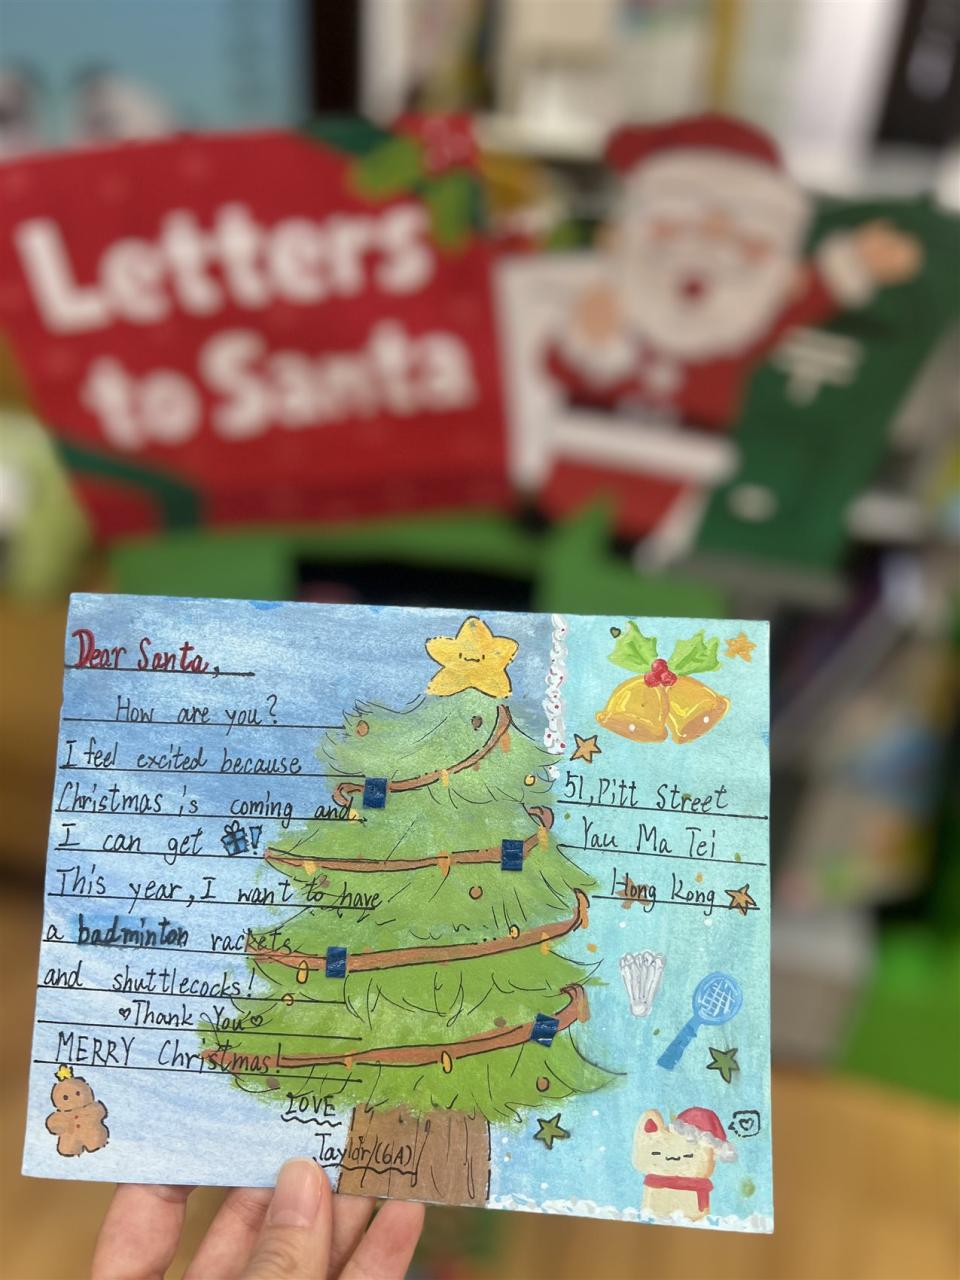 Letters
to Santa
Dear Santa,
How are you?
I feel excited because
Christmas is coming and
I can get !
This year, I want to have
a badminton rackets
and shuttlecocks!
Thank You
MERRY Christmas!
LOVE
Taylor(6A)
51, Pitt Street
Yau Ma Tei
Hong Kong